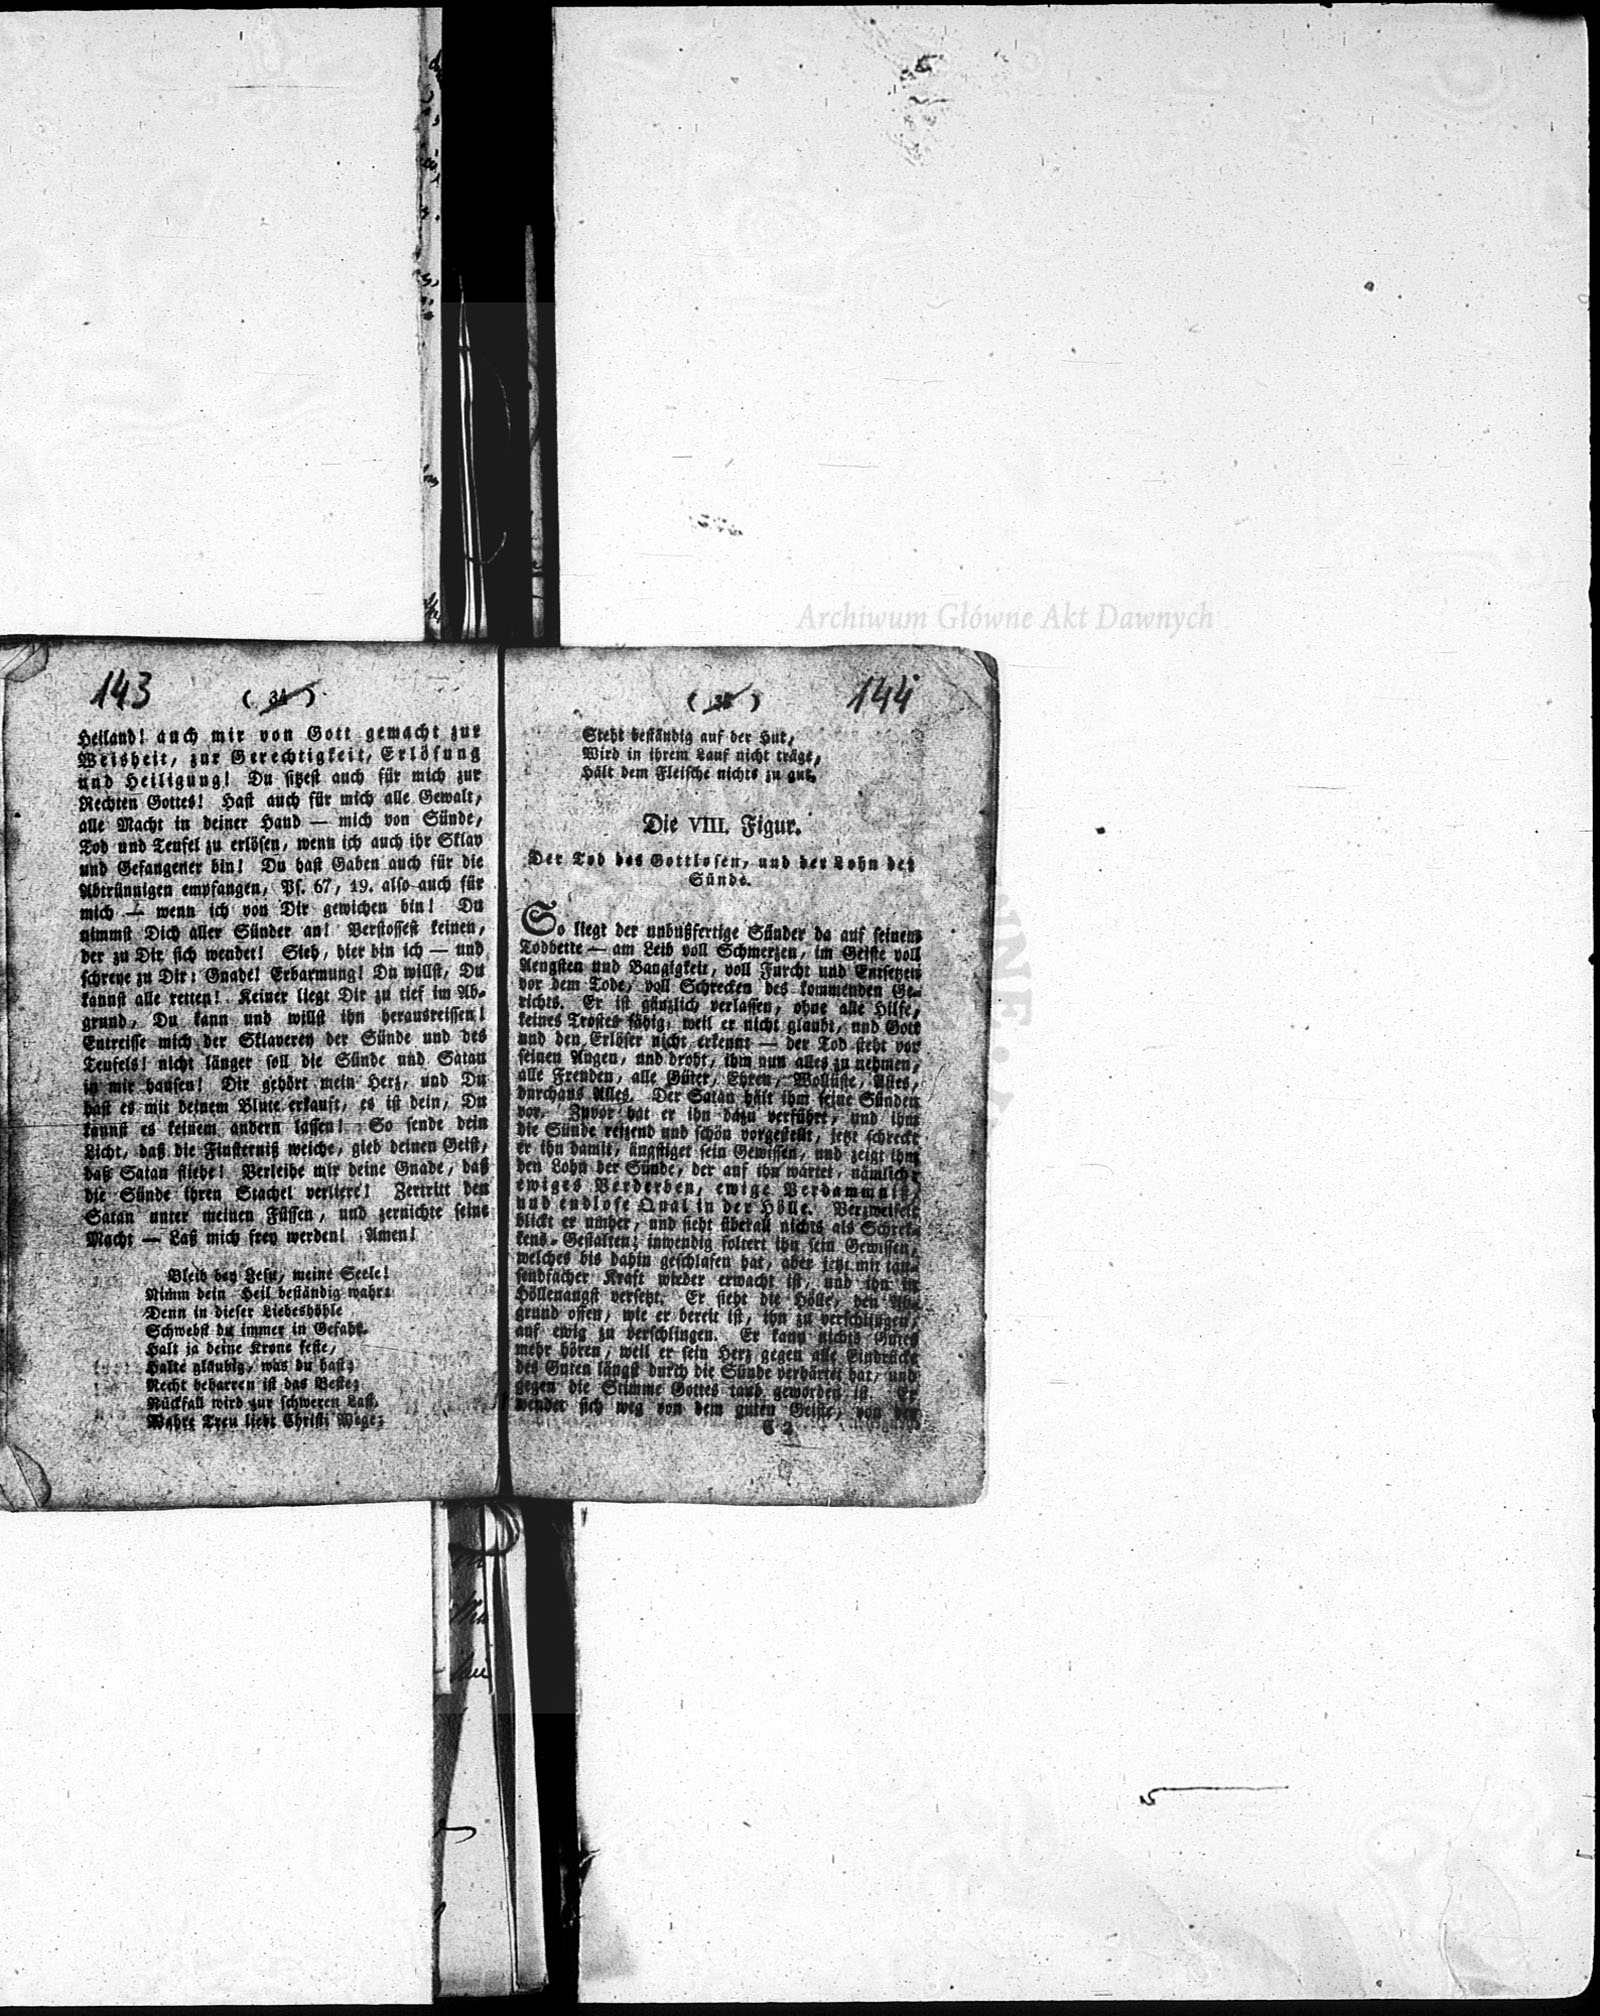 143
( 34 )
Heiland! auch mir von Gott gemacht zur
Weisheit, zur Gerechtigkeit, Erlösung
und Heiligung! Du sitzest auch für mich zur
Rechten Gottes! Hast auch für mich alle Gewalt,
alle Macht in deiner Hand — mich von Sünde,
Tod und Teufel zu erlösen, wenn ich auch ihr Sklav
und Gefangener bin! Du hast Gaben auch für die
Abtrünnigen empfangen, Ps. 67, 19. also auch für
mich — wenn ich von Dir gewichen bin! Du
nimmst Dich aller Sünder an! Verstossest keinen,
der zu Dir sich wendet! Sieh, hier bin ich — und
schreye zu Dir: Gnade! Erbarmung! Du willst, Du
kannst alle retten! Keiner liegt Dir zu tief im Ab-
grund, Du kann und willst ihn herausreissen!
Entreisse mich der Sklaverey der Sünde und des
Teufels! nicht länger soll die Sünde und Satan
in mir hausen! Dir gehört mein Herz, und Du
hast es mit deinem Blute erkauft, es ist dein, Du
kannst es keinem andern lassen! So sende dein
Licht, daß die Finsterniß weiche, gieb deinen Geist,
daß Satan fliehe! Verleihe mir deine Gnade, daß
die Sünde ihren Stachel verliere! Zertritt den
Satan unter meinen Füssen, und zernichte seine
Macht — Laß mich frey werden! Amen!
Bleib bey Jesu, meine Seele!
Nimm dein Heil beständig wahr:
Denn in dieser Liebeshöhle
Schwebst du immer in Gefahr.
Halt ja deine Krone feste,
Halte gläubig, was du hast;
Recht beharren ist das Beste;
Rückfall wird zur schweren Last.
Wahre Treu liebt Christi Wege;
144
( 35 )
Steht beständig auf der Hut,
Wird in ihrem Lauf nicht träge,
Hält dem Fleische nichts zu gut.
Die VIII. Figur.
Der Tod des Gottlosen, und der Lohn der
Sünde.
So liegt der unbußfertige Sünder da auf seinem
Todbette — am Leib voll Schmerzen, im Geiste voll
Aengsten und Bangigkeit, voll Furcht und Entsetzen
vor dem Tode, voll Schrecken des kommenden Ge-
richts. Er ist gänzlich verlassen, ohne alle Hilfe,
keines Trostes fähig, weil er nicht glaubt, und Gott
und den Erlöser nicht erkennt — der Tod steht vor
seinen Augen, und droht, ihm nun alles zu nehmen,
alle Freuden, alle Güter, Ehren, Wollüste, Alles,
durchaus Alles. Der Satan hält ihm seine Sünden
vor. Zuvor hat er ihn dazu verführt, und ihm
die Sünde reizend und schön vorgestellt, jetzt schreckt
er ihn damit, ängstiget sein Gewissen, und zeigt ihm
den Lohn der Sünde, der auf ihn wartet, nämlich:
ewiges Verderben, ewige Verdammniß,
und endlose Qual in der Hölle. Verzweifelt
blickt er umher, und sieht überall nichts als Schrek-
kens-Gestalten; inwendig foltert ihn sein Gewissen,
welches bis dahin geschlafen hat, aber jetzt mit tau-
sendfacher Kraft wieder erwacht ist, und ihn in
Höllenangst versetzt. Er sieht die Hölle, den Ab-
grund offen, wie er bereit ist, ihn zu verschlingen,
auf ewig zu verschlingen. Er kann nichts Gutes
mehr hören, weil er sein Herz gegen alle Eindrücke
des Guten längst durch die Sünde verhärtet hat, und
gegen die Stimme Gottes taub geworden ist. Er
wendet sich weg von dem guten Geiste, von der
C 2
Archiwum Główne Akt Dawnych